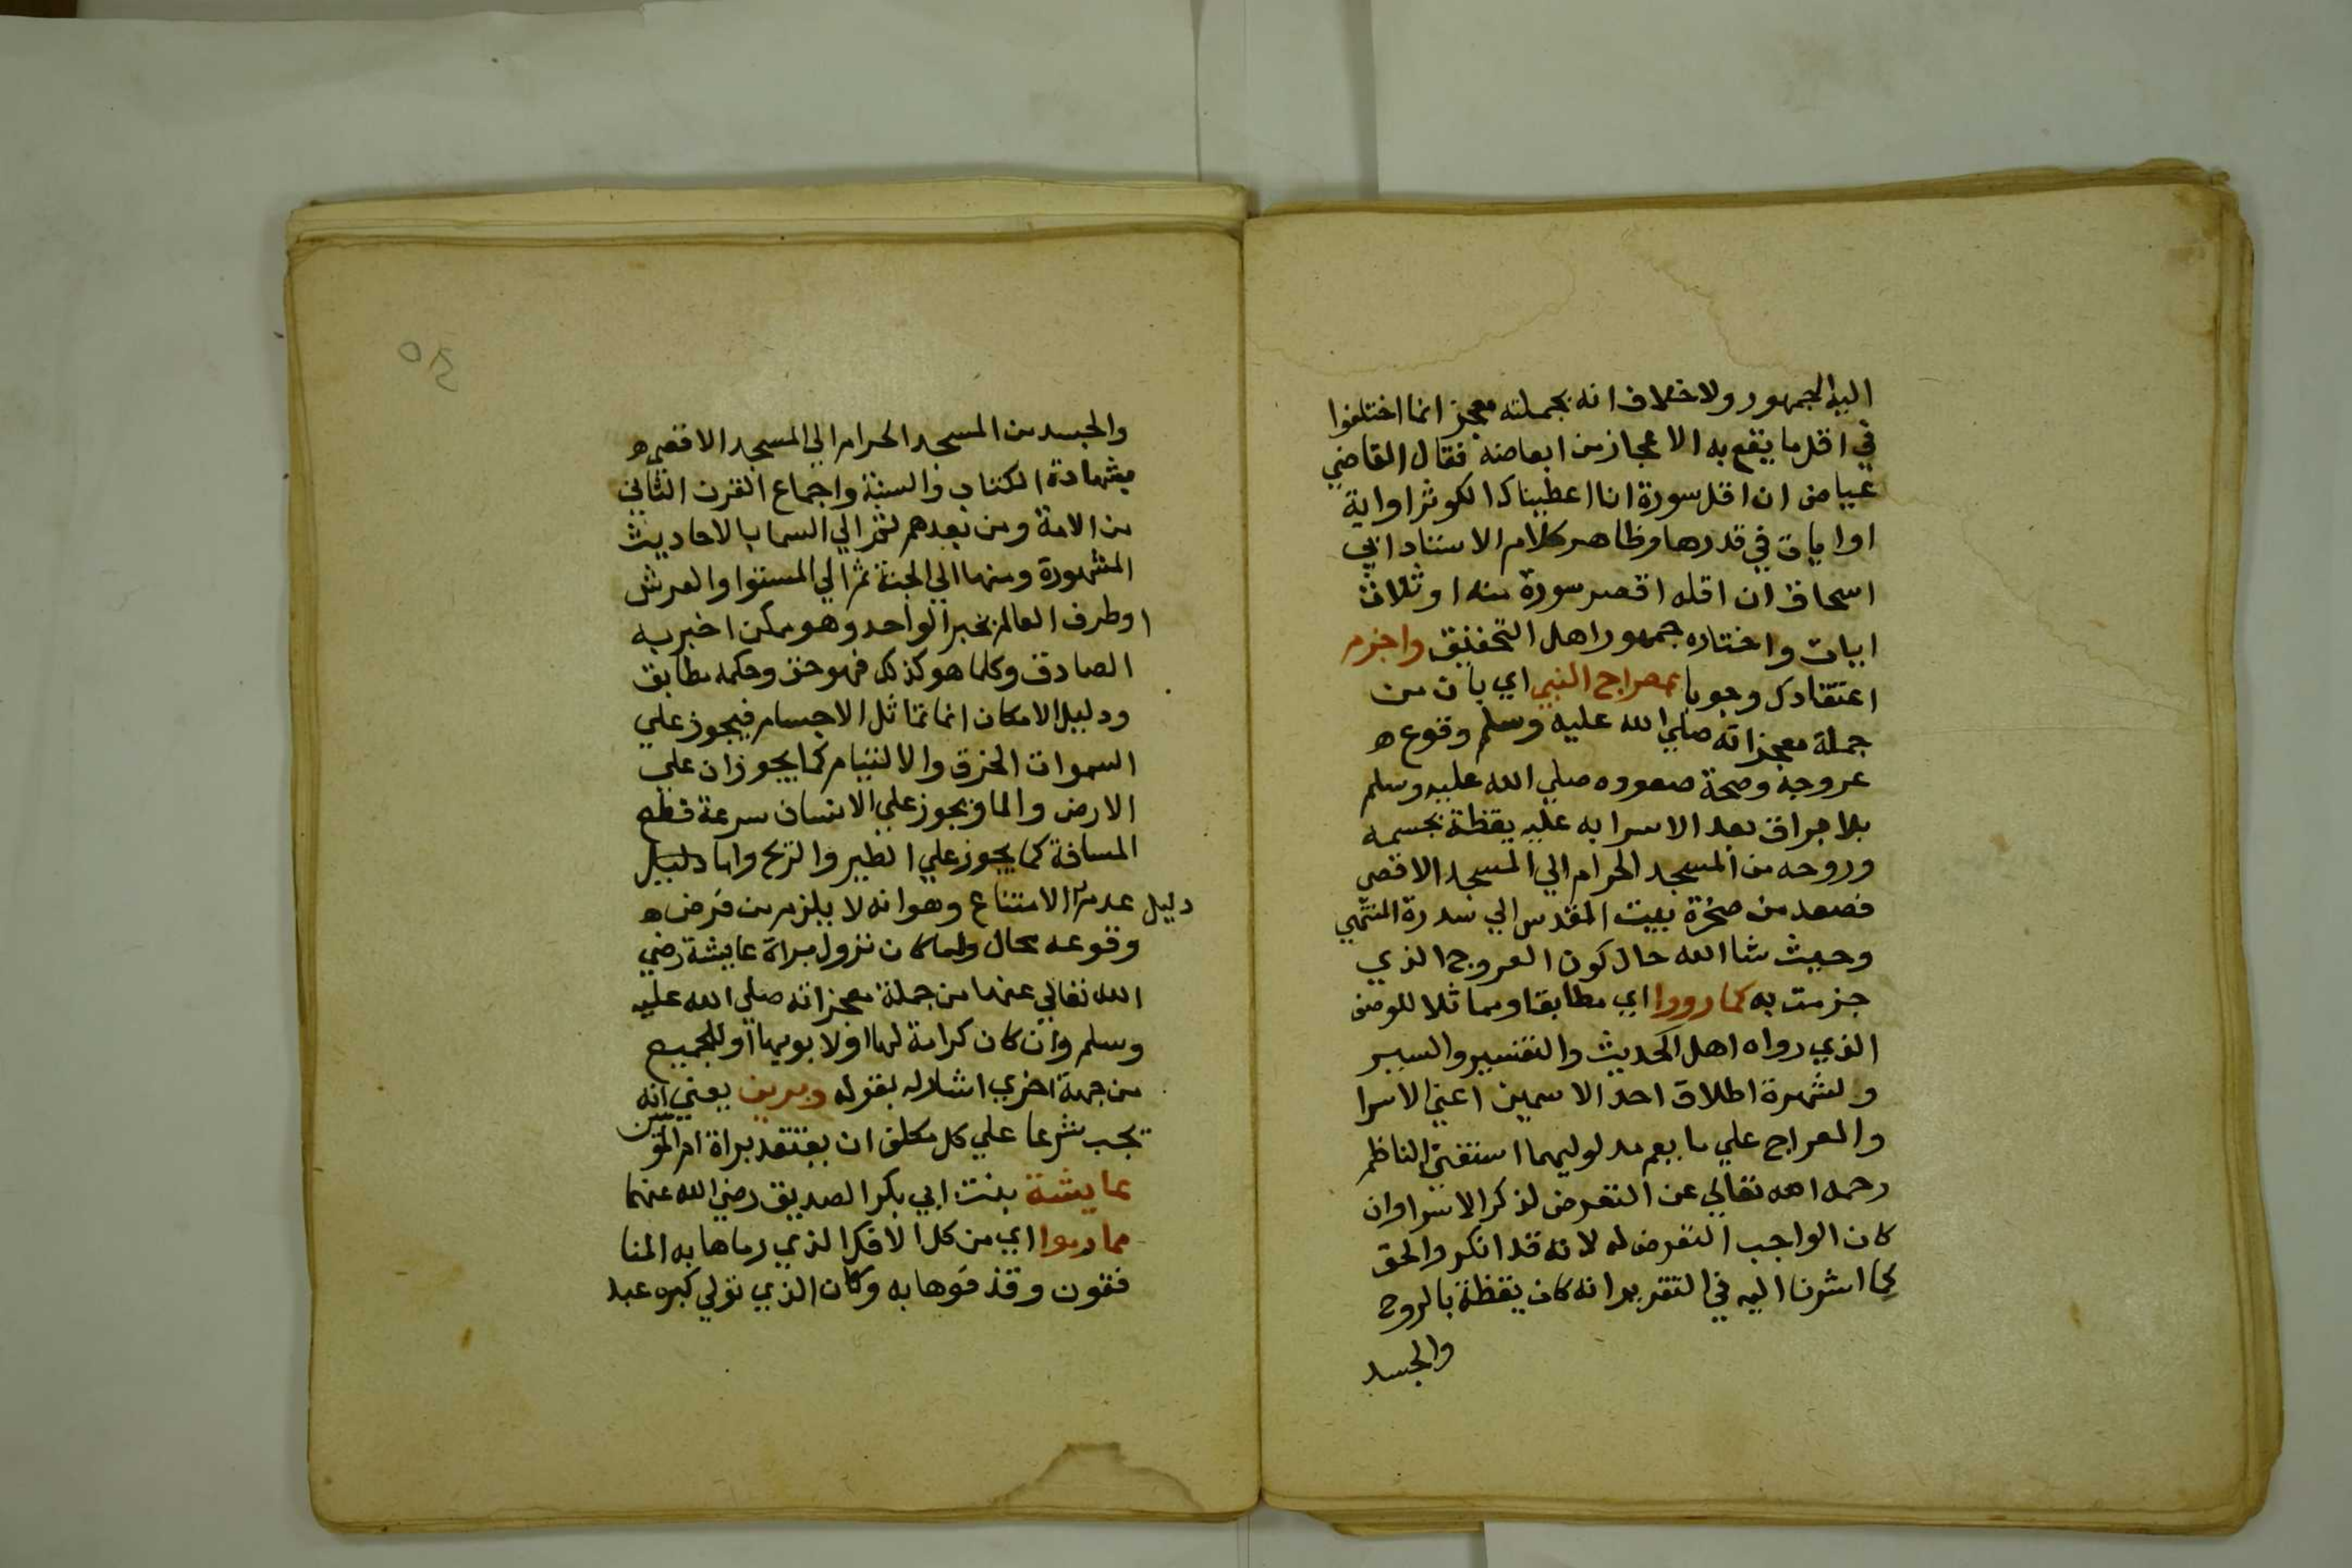 اليه الجمهور ولا خلاف انه بجملته معجز انما اختلفوا
في اقل ما يقع به الاعجاز من ابعاضه فقال القاضي
عياض ان اقل سورة انا اعطيناك الكوثر او اية
او ايات في قدرها وظاهر كلام الاستاد ابي
اسحاق ان اقله اقصر سورة منه او ثلاث
ايات واختاره جمهور اهل التحقيق واجزم
اعتقادك وجوبا بمعراج النبي اي بان من
جملة معجزاته صلي الله عليه وسلم وقوع ه
عروجه وصحة صعوده صلي الله عليه وسلم
بلا براق بعد الاسرا به عليه يقظة بجسمه
وروحه من المسجد الحرام الي المسجد الاقصي
فصعد من صخرة بيت المقدس الي سدرة المنتهي
وحيث شا الله حال كون العروج الذي
جزمت به كما رووا اي مطابقا ومماثلا للوصف
الذي رواه اهل الحديث والتفسير والسير
ولشهرة اطلاق احد الاسمين اعني الاسرا
والمعراج علي ما يعم مدلوليهما استغني الناظم
رحمه الله تعالي عن التعرض لذكر الاسرا وان
كان الواجب التعرض له لانه قد انكر والحق
كما اشرنا اليه في التقرير انه كان يقظة بالروح
والجسد
٥٤
والجسد من المسجد الحرام الي المسجد الاقصي ه
بشهادة الكتاب والسنة واجماع القرن الثاني
من الامة ومن بعدهم ثم الي السما بالاحاديث
المشهورة ومنها الي الجنة ثم الي المستوا والعرش
او طرف العالم بخبر الواحد وهو ممكن اخبر به
الصادق وكلما هو كذلك فهو حق وحكمه مطابق
ودليل الامكان انما تماثل الاجسام فيجوز علي
السموات الخرق والالتيام كما يجوزان علي
الارض والما ويجوز علي الانسان سرعة قطع
المسافة كما يجوز علي الطير والريح واما دليل
دليل عدم الامتناع وهو انه لا يلزم من فرض ه
وقوعه محال ولما كان نزول براة عايشة رضي
الله تعالي عنها من جملة معجزاته صلي الله عليه
وسلم وان كان كرامة لها او لابويها او للجميع
من جهة اخري اشار له بقوله وبرين يعني انه
يجب شرعا علي كل مكلف ان يعتقد براة ام المؤمنين
عايشة بنت ابي بكر الصديق رضي الله عنهما
مما رموا اي من كل الافك الذي رماها به المنا
فقون وقذفوها به وكان الذي تولي كبره عبد